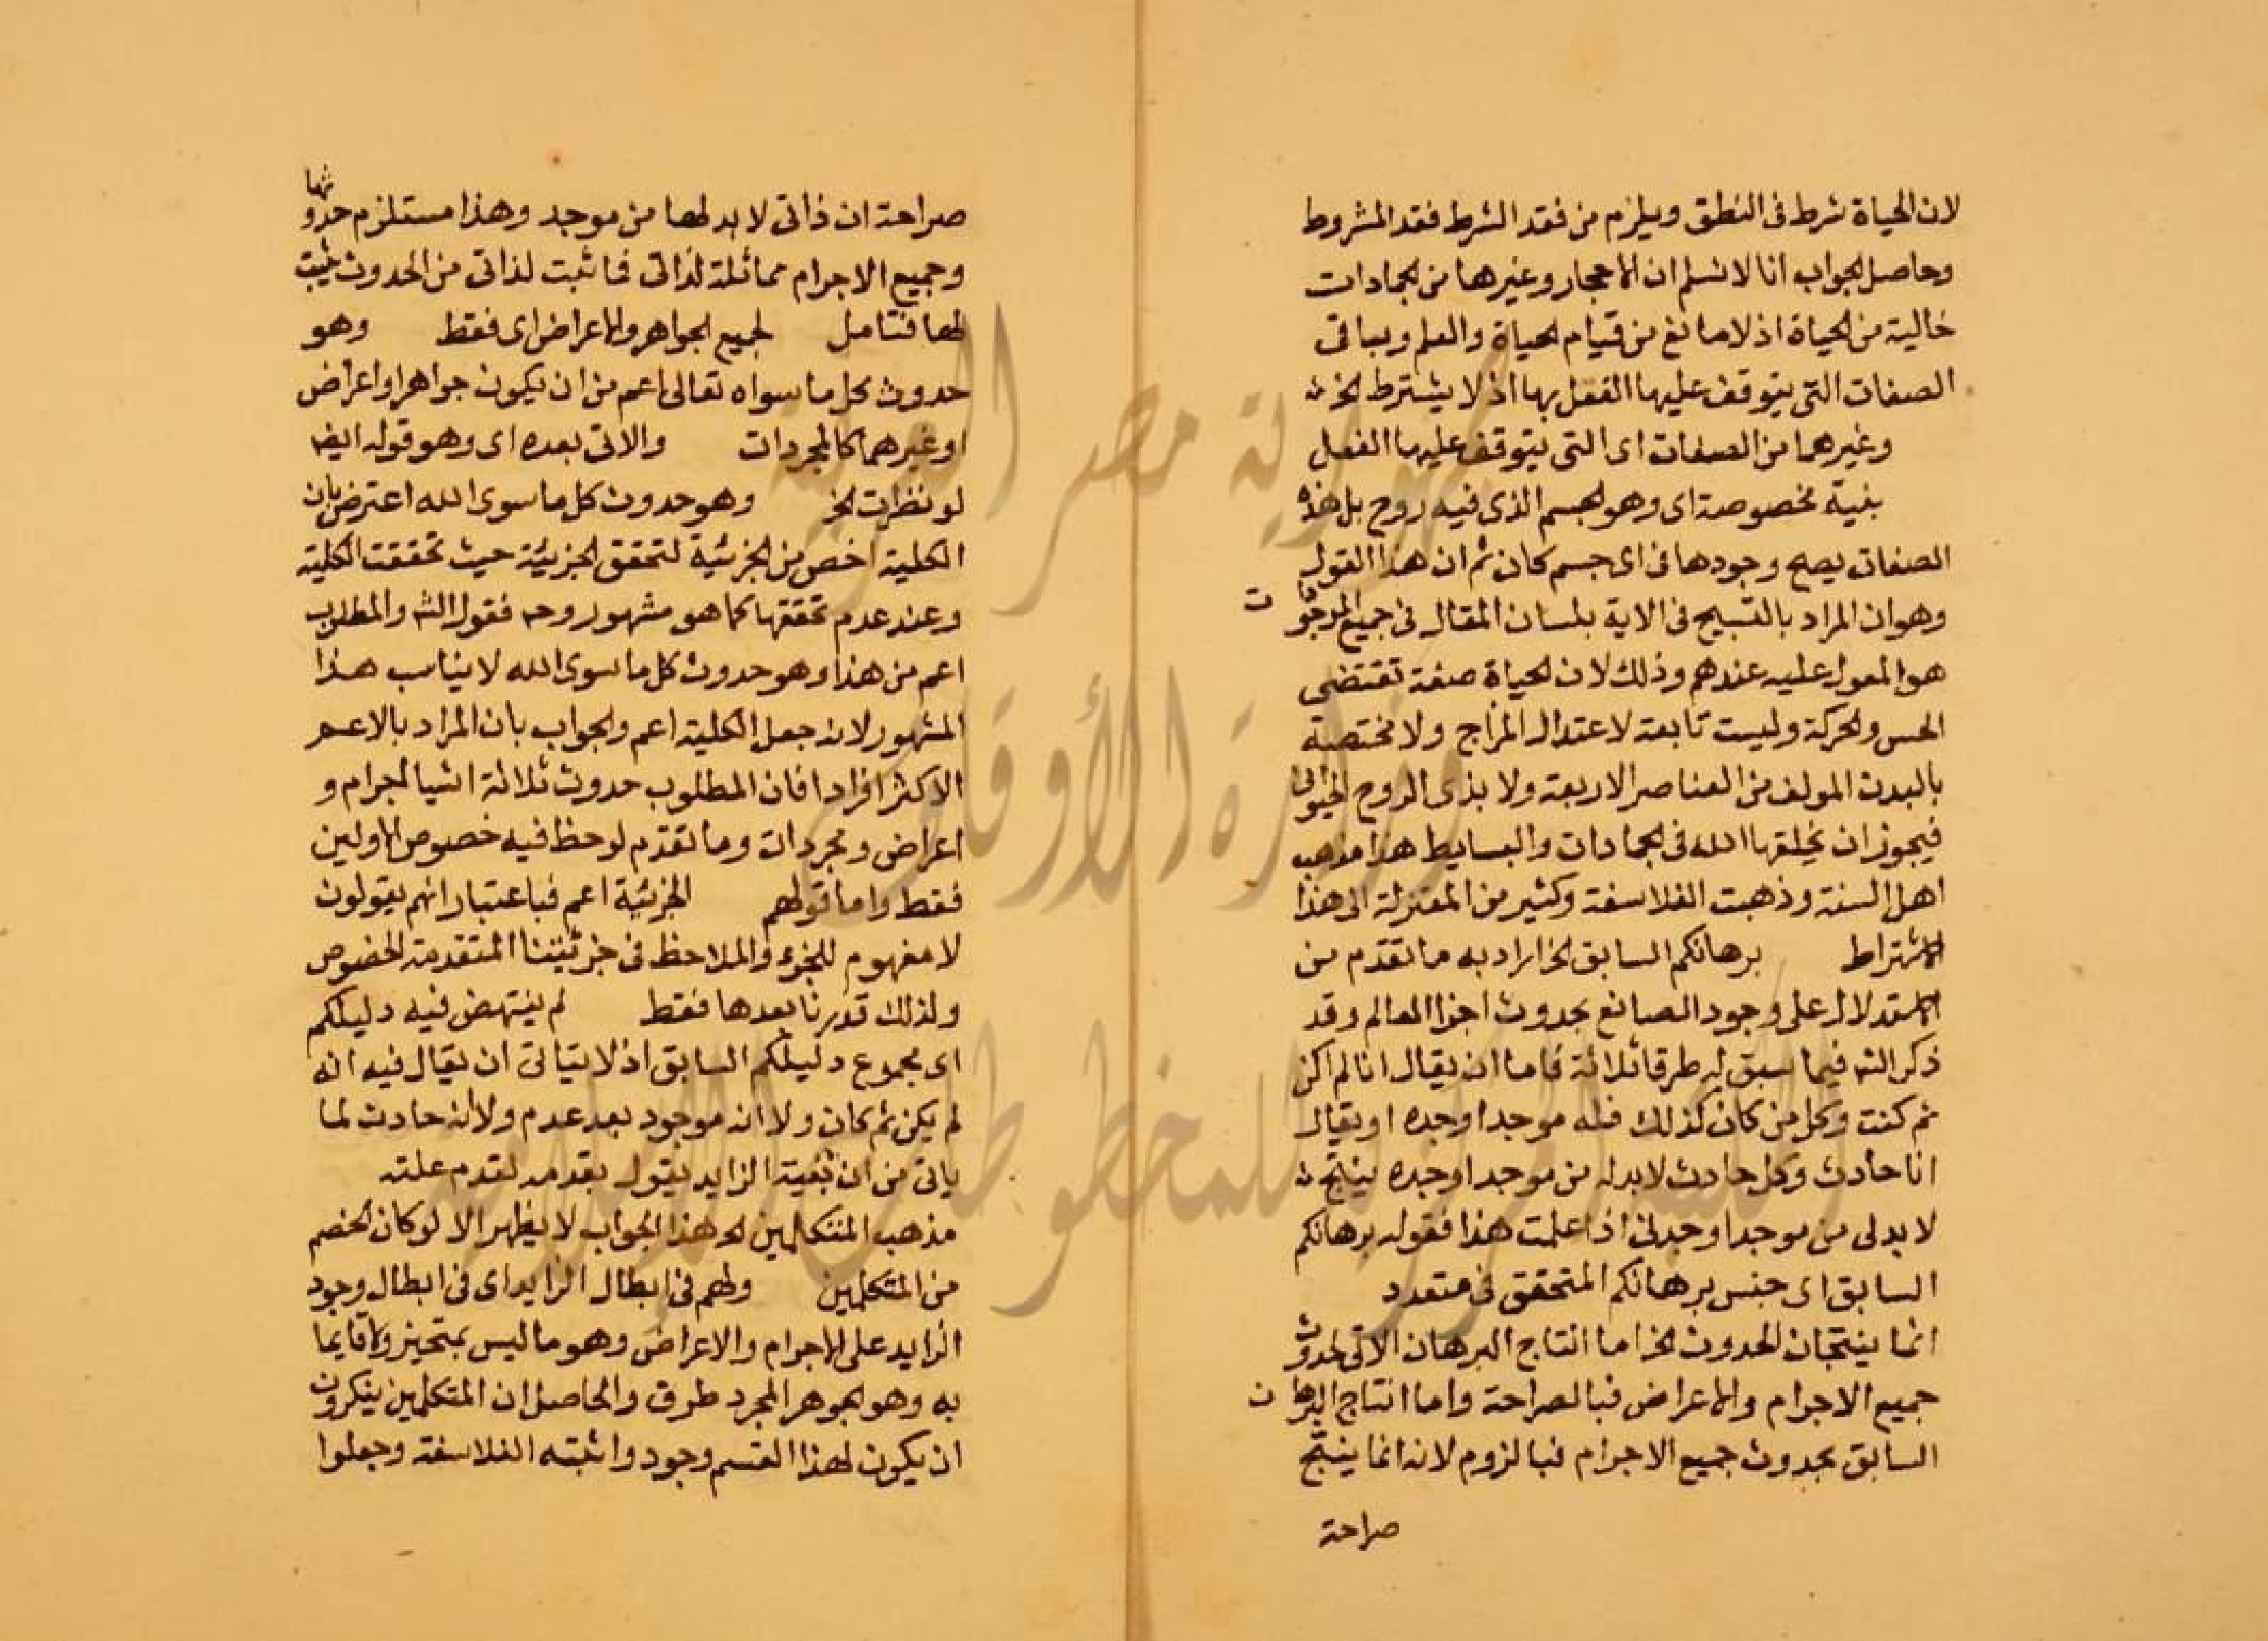 لان الحياة شرط فى النطق ويلزم من فقد الشرط فقد المشروط
وحاصل الجواب انا لا نسلم ان الاحجار وغيرها من الجمادات
خالية من الحياة اذ لا مانع من قيام الحياة والعلم وبباقى
الصفات التى يتوقف عليها الفعل بها اذ لا يشترط الخ
وغيرهما من الصفات اى التى يتوقف عليها الفعل
بنية مخصوصة اى وهو الجسم الذى فيه روح بل هذه
الصفات يصح وجودها فى اى جسم كان ثم ان هذا القول
وهو ان المراد بالتسبيح فى الاية بلسان المقال فى جميع الموجودات
هو المعول عليه عندهم وذلك لان الحياة صفة تقتضى
الحس والحركة وليست تابعة لاعتدال المزاج ولا مختصة
بالبدن المولف من العناصر الاربعة ولا بذى الروح الحيوانى
فيجوز ان يخلقها الله فى الجمادات والبسايط هذا مذهب
اهل السنة وذهبت الفلاسفة وكثير من المعتزلة الى هذا
الاشتراط برهانكم السابق الخ اراد به ما تقدم من
الاستدلال على وجود الصانع بحدوث اجزا العالم وقد
ذكر الش فيما سبق له طرقا ثلاثة فاما ان يقال انا لم اكن
ثم كنت وكل من كان كذلك فله موجد اوجده او يقال
انا حادث وكل حادث لا بد له من موجد اوجده ينتج
لا بد لى من موجد اوجدنى اذا علمت هذا فقوله برهانكم
السابق اى جنس برهانكم المتحقق فى متعدد
انما ينتجان الحدوث الخ اما انتاج البرهان الاتى لحدوث
جميع الاجرام والاعراض فبالصراحة واما انتاج البرهان
السابق بحدوث جميع الاجرام فبالزوم لانه انما ينتج
صراحة
صراحة ان ذاتى لا بد لها من موجد وهذا مستلزم حدوثها
وجميع الاجرام مماثلة لذاتى فما ثبت لذاتى من الحدوث يثبت
لها فتامل لجميع الجواهر والاعراض اى فقط وهو
حدوث كل ما سواه تعالى اعم من ان يكون جواهر او اعراض
او غيرهما كالمجردات والاتى بعده اى وهو قوله ايضا
لو نظرت الخ وهو حدوث كل ما سوى الله اعترض بان
الكلية اخص من الجزئية لتحقق الجزئية حيث تحققت الكلية
وعند عدم تحققها كما هو مشهور وح فقول الش والمطلوب
اعم من هذا وهو حدوث كل ما سوى الله لا يناسب هذا
المشهور لانه جعل الكلية اعم والجواب بان المراد بالاعم
الاكثر افرادا فان المطلوب حدوث ثلاثة اشيا اجرام و
اعراض ومجردات وما تقدم لوحظ فيه خصوص الاولين
فقط واما قولهم الجزئية اعم فباعتبار انهم يقولون
لا مفهوم للجزء والملاحظ فى جزئيتنا المتقدمة الخصوص
ولذلك قدرنا بعدها فقط لم ينتهض فيه دليلكم
اى مجموع دليلكم السابق اذ لا يتاتى ان يقال فيه انه
لم يكن ثم كان ولا انه موجود بعد عدم ولا انه حادث لما
ياتى من ان مثبة الزايد يقول بقدمه لقدم علته
مذهب المتكلمين الخ هذا الجواب لا يظهر الا لو كان الخصم
من المتكلمين ولهم فى ابطال الزايد اى فى ابطال وجود
الزايد على الاجرام والاعراض وهو ما ليس بمتحيز ولا قايما
به وهو الجوهر المجرد طرق والحاصل ان المتكلمين ينكرون
ان يكون لهذا القسم وجود واثبته الفلاسفة وجعلوا